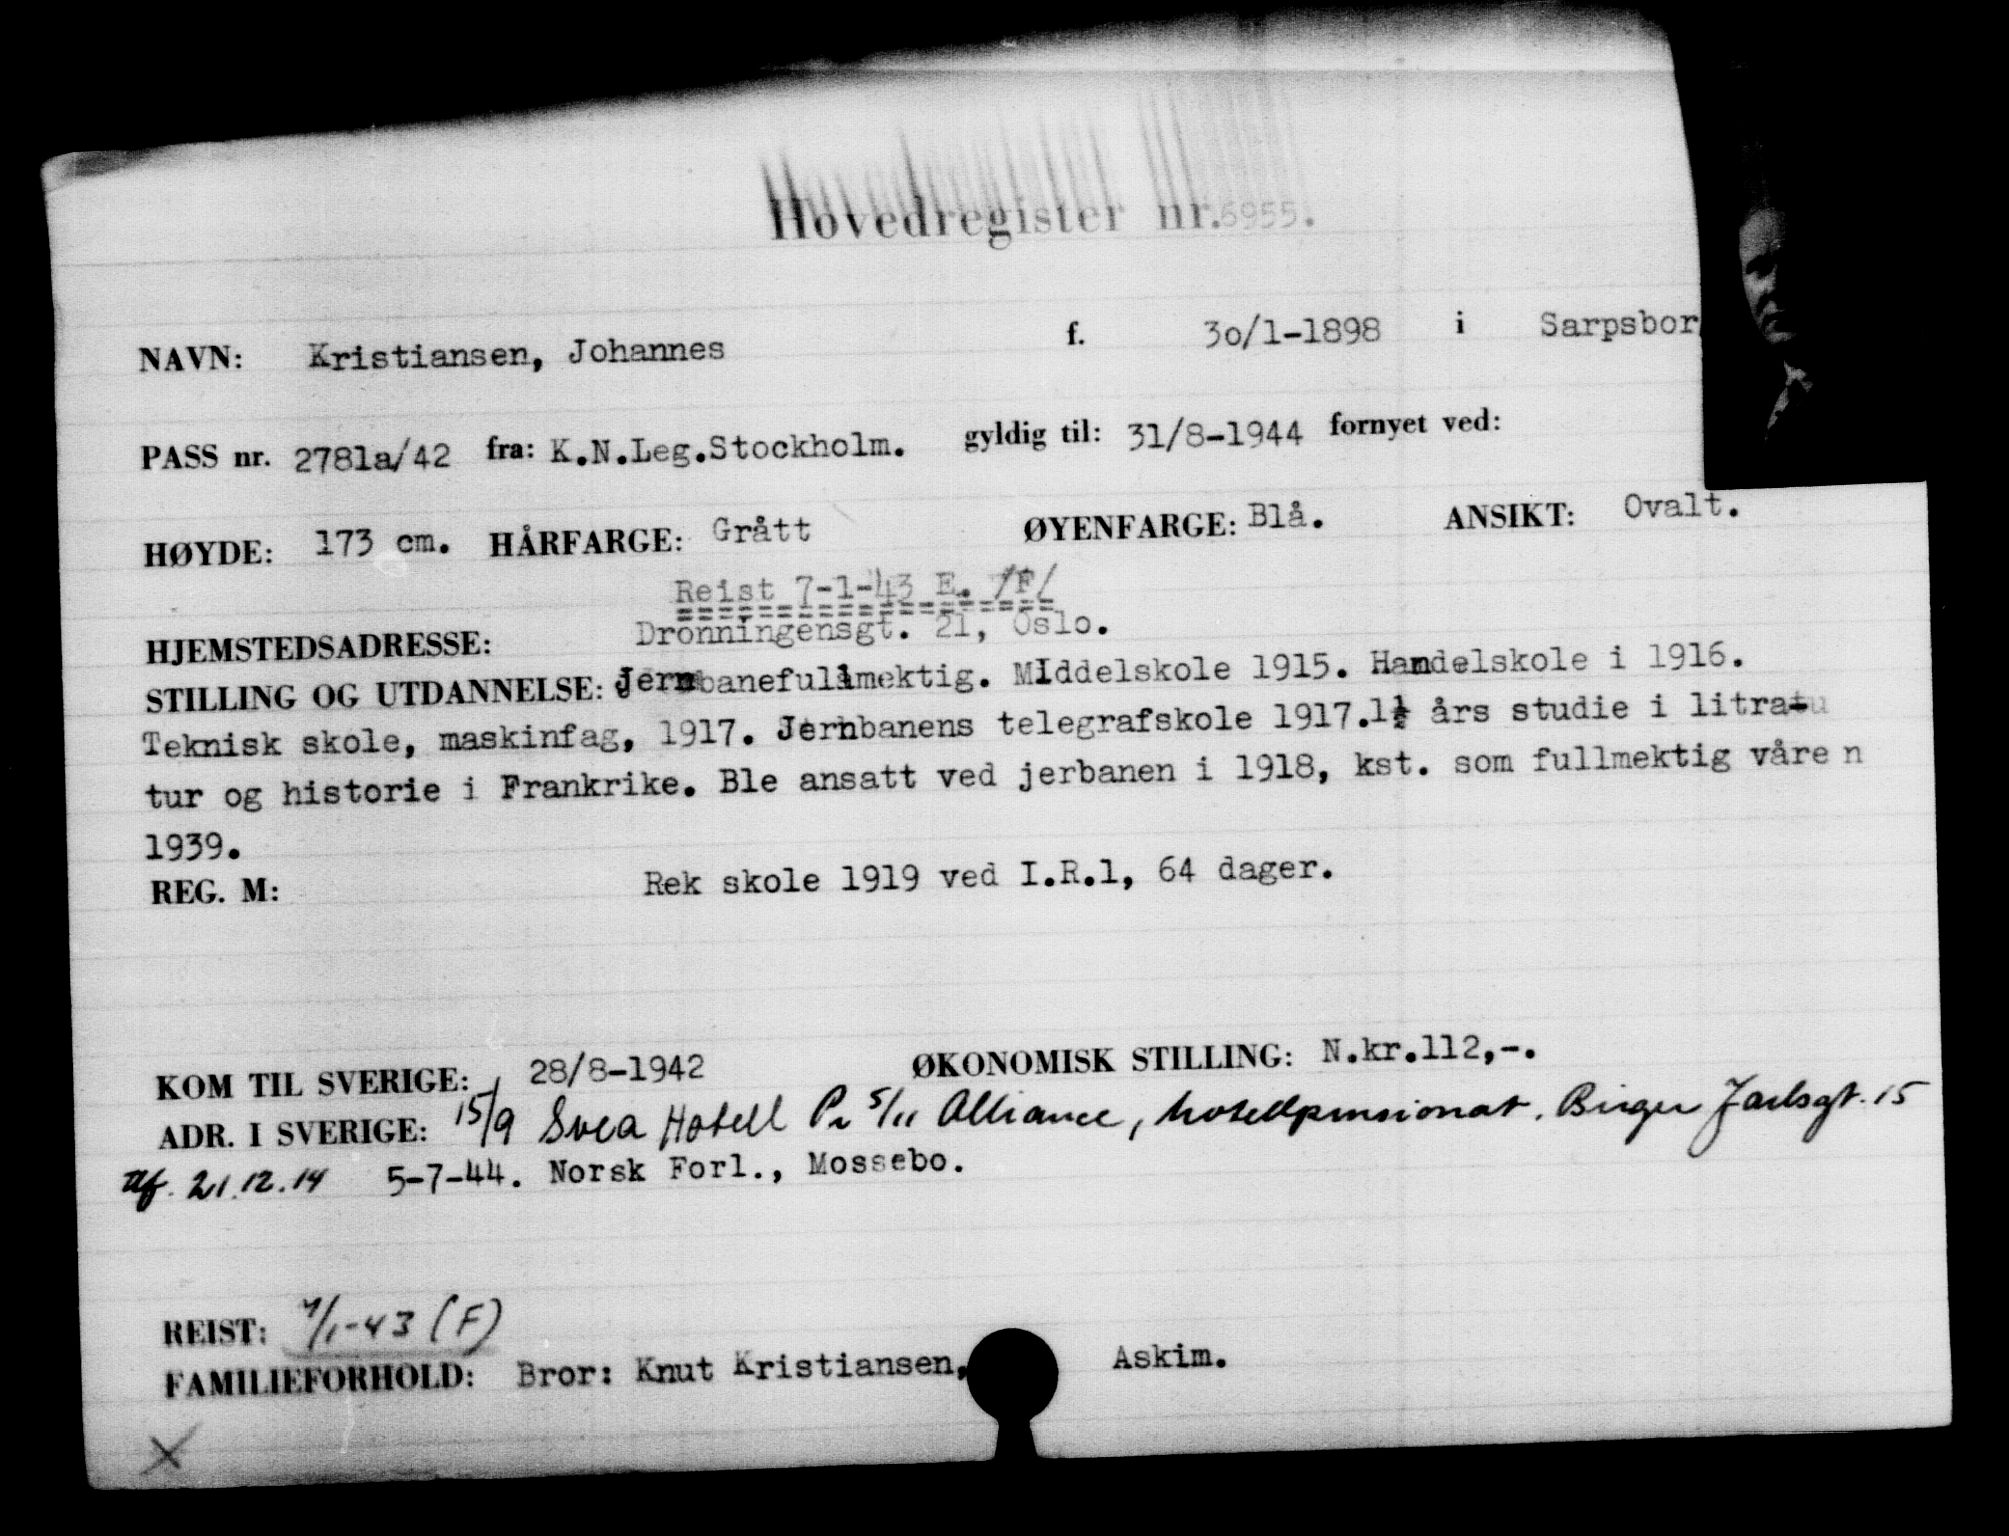 Hovedregister nr.6955.
NAVN: Kristiansen, Johannes f. 3o/1-1898 i Sarpsbor
PASS nr. 2781a/42 fra: K.N.Leg.Stockholm. gyldig til: 31/8-1944 fornyet ved:
HØYDE: 173 cm. HÅRFARGE: Grått ØYENFARGE: Blå. ANSIKT: Ovalt.
Reist 7-1-43 E. /F/
HJEMSTEDSADRESSE: Dronningensgt. 21, Oslo.
STILLING OG UTDANNELSE: Jernbanefullmektig. MIddelskole 1915. Handelskole i 1916.
Teknisk skole, maskinfag, 1917. Jernbanens telegrafskole 1917.1½ års studie i litratu
tur og historie i Frankrike. Ble ansatt ved jerbanen i 1918, kst. som fullmektig våren
1939.
REG. M: Rek skole 1919 ved I.R.1, 64 dager.
KOM TIL SVERIGE: 28/8-1942 ØKONOMISK STILLING: N.kr.112,-.
ADR. I SVERIGE: 15/9 Svea Hotell Pr 5/11 Alliance, hotellpensionat. Birger Jarlsgt. 15
tlf. 21.12.14 5-7-44. Norsk Forl., Mossebo.
REIST: 7/1-43 (F)
FAMILIEFORHOLD: Bror: Knut Kristiansen, Askim.
X